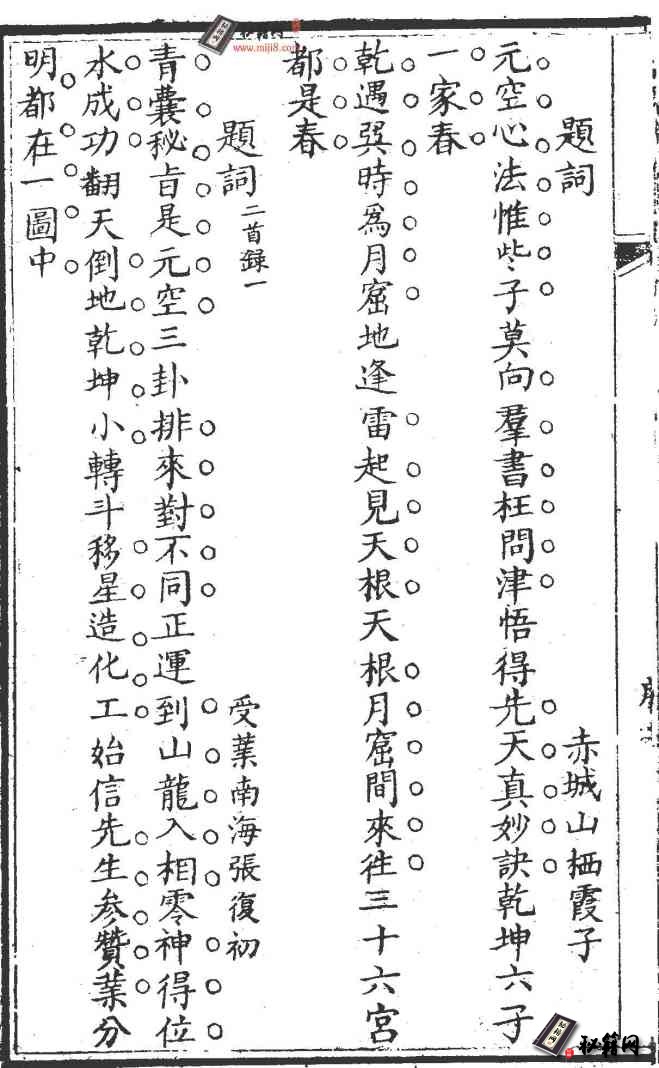 題詞
赤城山栖霞子
元空心法惟些子莫向羣書枉問津悟得先天真妙訣乾坤六子
一家春
乾遇巽時爲月窟地逢雷起見天根天根月窟間來徃三十六宮
都是春
題詞二首錄一
受業南海張復初
青囊秘旨是元空三卦排來對不同正運到山龍入相零神得位
水成功翻天倒地乾坤小轉斗移星造化工始信先生参贊業分
明都在一圖中
www.miji8.com
秘籍网